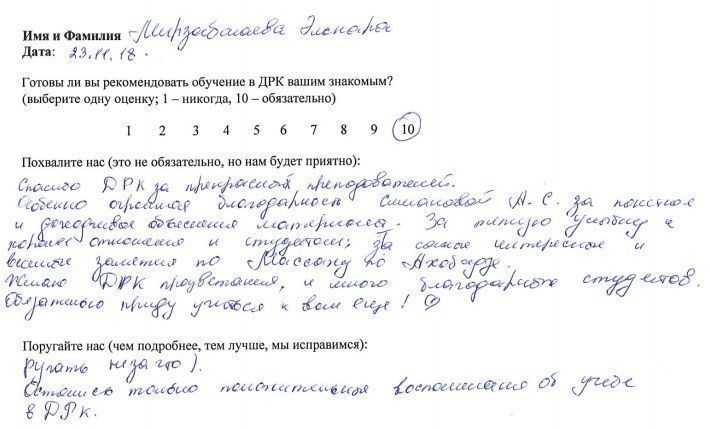 Имя и Фамилия Мирзабалаева Эльнара
Дата: 23.11.18.
Готовы ли вы рекомендовать обучение в ДРК вашим знакомым?
(выберите одну оценку; 1 – никогда, 10 – обязательно)
1 2 3 4 5 6 7 8 9 10
Похвалите нас (это не обязательно, но нам будет приятно):
Спасибо ДРК за прекрасных преподавателей.
Особенно огромная благодарность А.С. за понятное
и доходчивое объяснение материала. За теплую улыбку и
хорошее отношение к студентам; За самое интересное и
веселые занятия по Массажу по
Желаю ДРК процветания, и много благодарных студентов.
Обязательно приду учиться к вам еще! ♡
Поругайте нас (чем подробнее, тем лучше, мы исправимся):
Ругать не за что).
Остались только положительные воспоминания об учебе
в ДРК.